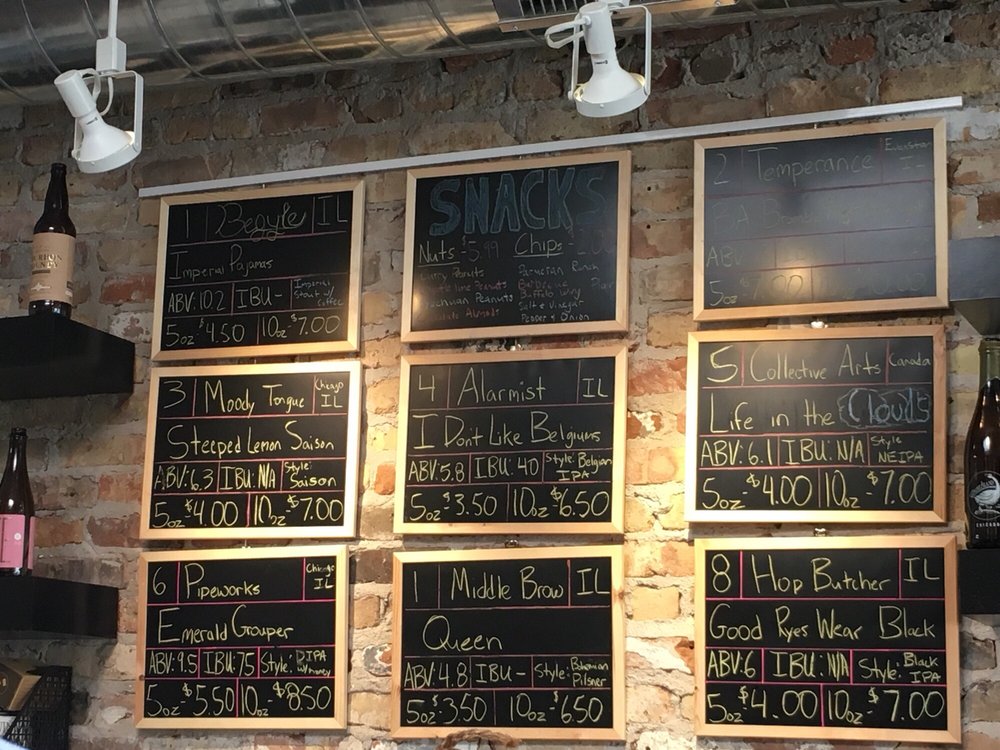 1 Begyle IL
Imperial Pajamas
ABV: 10.2 IBU- Imperial Stout w/ Coffee
5oz-$4.50 10oz-$7.00
SNACKS
Nuts-$5.99 Chips-
Curry Peanuts Parmesan Ranch
Peanuts Barbecue
Peanuts Buffalo Wing
Almonds Salt & Vinegar
Pepper & Onion
2 Temperance Evanston IL
ABV
5oz
3 Moody Tongue Chicago IL
Steeped Lemon Saison
ABV: 6.3 IBU: N/A Style: Saison
5oz-$4.00 10oz-$7.00
4 Alarmist IL
I Don't Like Belgiums
ABV: 5.8 IBU: 40 Style: Belgian IPA
5oz-$3.50 10oz-$6.50
5 Collective Arts Canada
Life in the Clouds
ABV: 6.1 IBU: N/A Style NEIPA
5oz-$4.00 10oz-$7.00
6 Pipeworks Chicago IL
Emerald Grouper
ABV: 9.5 IBU: 75 Style: DIPA w/honey
5oz-$5.50 10oz-$8.50
1 Middle Brow IL
Queen
ABV: 4.8 IBU- Style: Bohemian Pilsner
5oz-$3.50 10oz-$6.50
8 Hop Butcher IL
Good Ryes Wear Black
ABV: 6 IBU: N/A Style: Black IPA
5oz-$4.00 10oz-$7.00